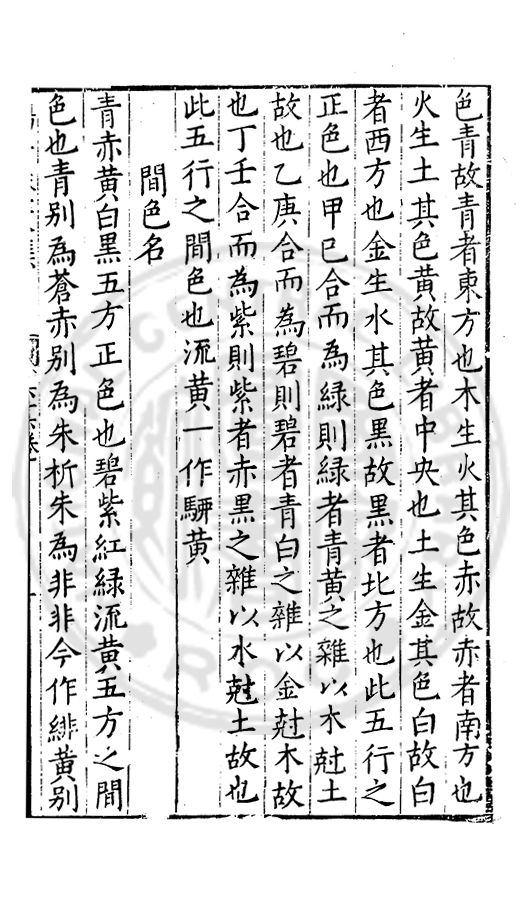 色青故青者東方也木生火其色赤故赤者南方也
火生土其色黄故黄者中央也土生金其色白故白
者西方也金生水其色黒故黒者北方也此五行之
正色也甲已合而為緑則緑者青黄之雜以木尅土
故也乙庚合而為碧則碧者青白之雜以金尅木故
也丁壬合而為紫則紫者赤黒之雜以水尅土故也
此五行之間色也流黄一作騈黄
間色名
青赤黄白黒五方正色也碧紫紅緑流黄五方之間
色也青别為蒼赤别為朱析朱為非非今作緋黄别